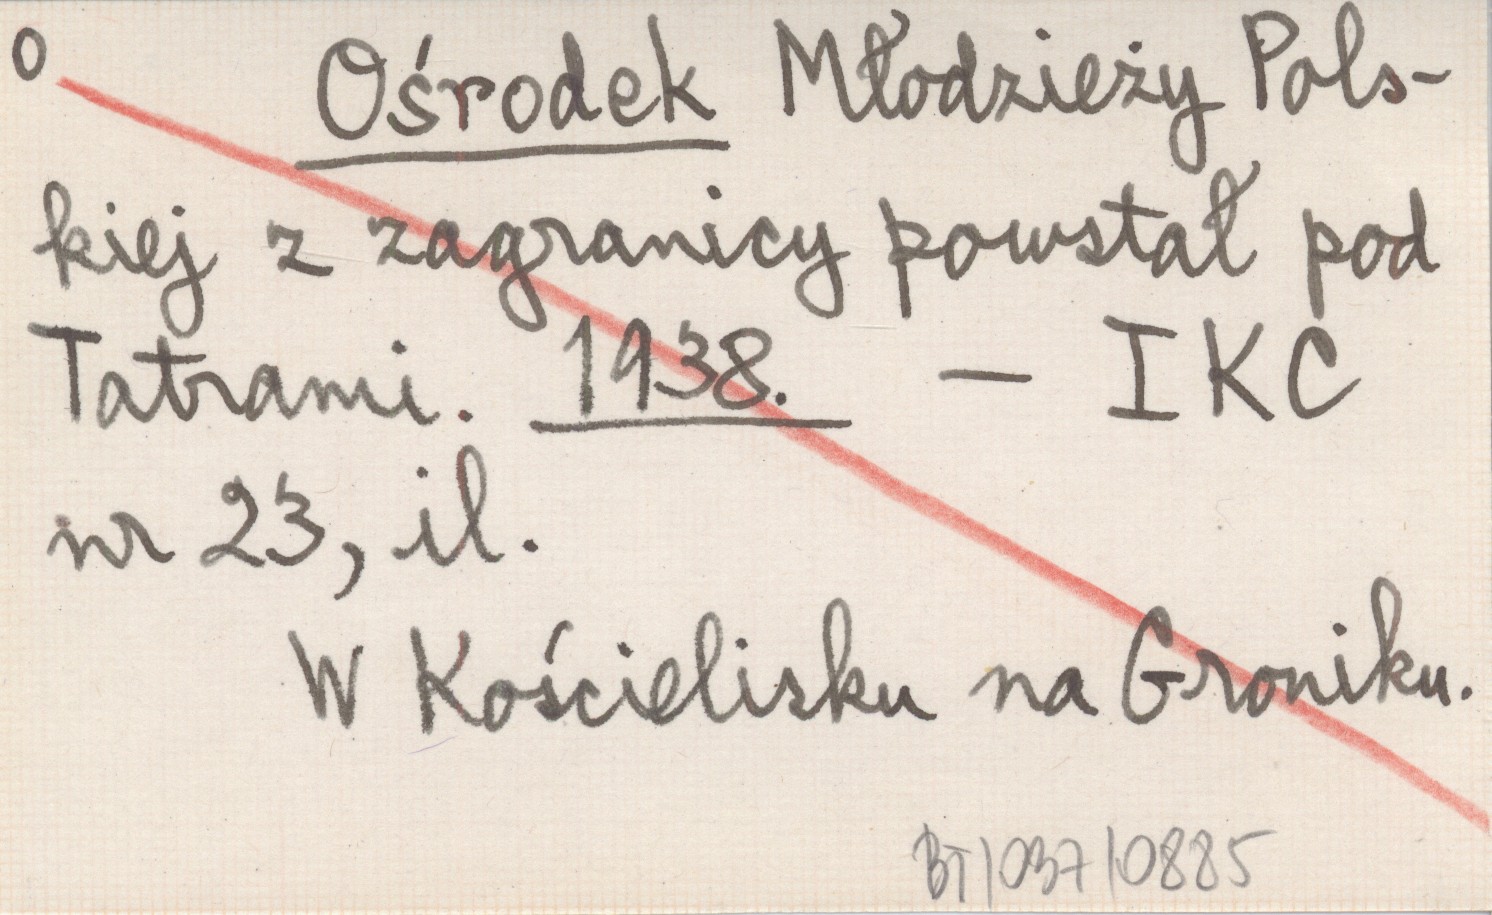 O
Ośrodek Młodzieży Pols-
kiej z zagranicy powstał pod
Tatrami. 1938. — IKC
nr 23, il.
W Kościelisku na Groniku.
BT/037/0885